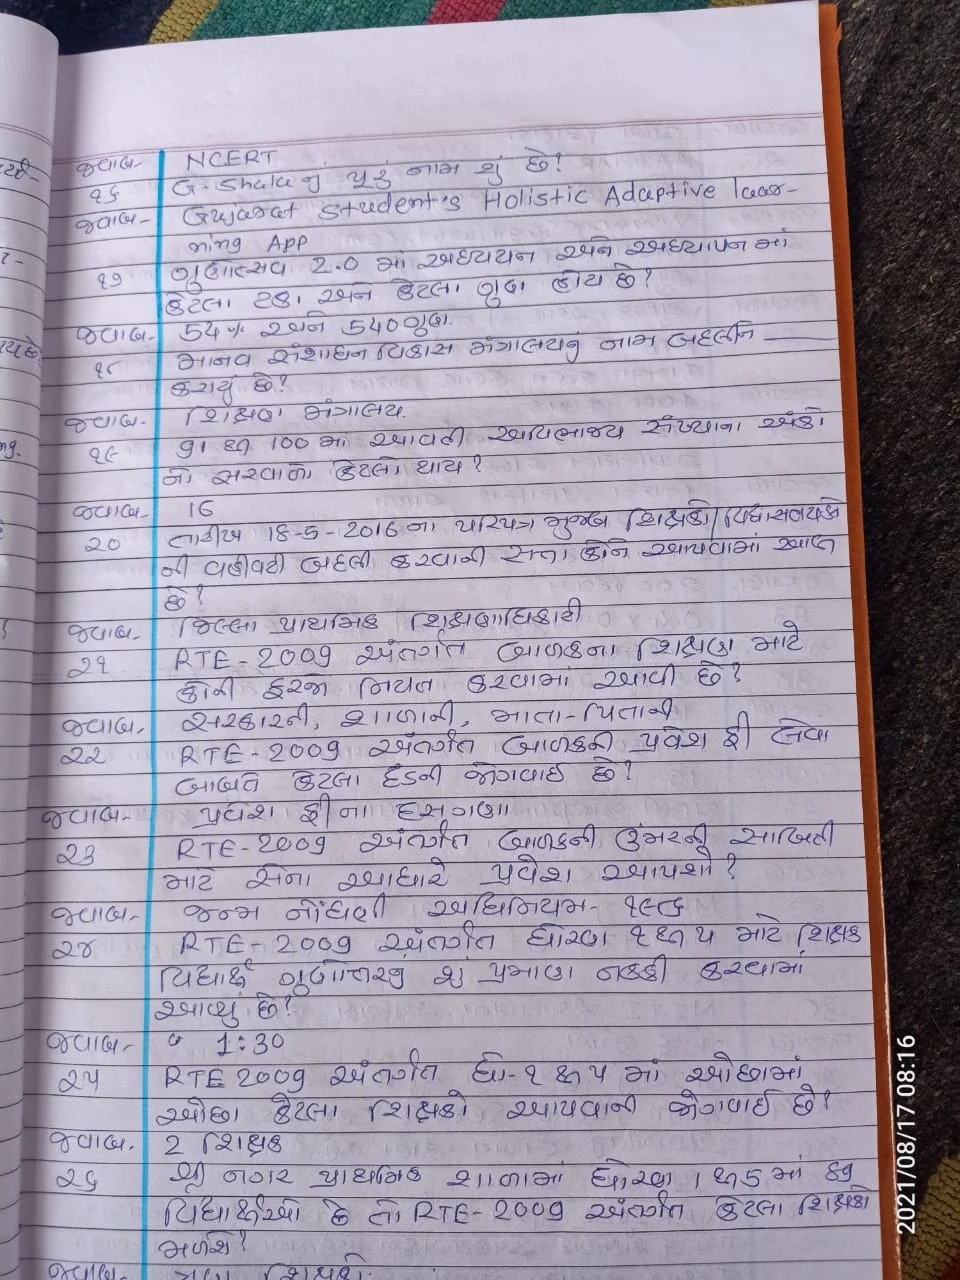 જવાબ- NCERT
૧૬ G-shala નું પૂરું નામ શું છે?
જવાબ- Gujarat student's Holistic Adaptive laear-
ning App
૧૭ ગુણોત્સવ 2.0 માં અધ્યયન અને અધ્યાપન માં
કેટલા ટકા અને કેટલા ગુણ હોય છે?
જવાબ- 54% અને 540 ગુણ.
૧૮ માનવ સંશાધન વિકાસ મંત્રાલયનું નામ બદલીને
કરાયું છે?
જવાબ- શિક્ષણ મંત્રાલય
૧૯ 91 થી 100 માં આવતી અવિભાજ્ય સંખ્યાના અંકો
નો સરવાળો કેટલો થાય?
જવાબ- 16
20 તારીખ 18-5-2016 ના પરિપત્ર મુજબ શિક્ષકો/વિદ્યાસહાયકો
ની વહીવટી બદલી કરવાની સત્તા કોને આપવામાં આવેલ
છે?
જવાબ- જિલ્લા પ્રાથમિક શિક્ષણાધિકારી
૨૧ RTE-2009 અંતર્ગત બાળકના શિક્ષણ માટે
કોની ફરજો નિયત કરવામાં આવી છે?
જવાબ, સરકારની, શાળાની, માતા-પિતાની
૨૨ RTE-2009 અંતર્ગત બાળકની પ્રવેશ ફી લેવા
બાબતે કેટલા દંડની જોગવાઈ છે?
જવાબ- પ્રવેશ ફીના દસગણા
૨૩ RTE-2009 અંતર્ગત બાળકની ઉંમરની સાબિતી
માટે સેના આધારે પ્રવેશ આપશો?
જવાબ- જન્મ નોંધણી અધિનિયમ- ૧૯૮૬
૨૪ RTE-2009 અંતર્ગત ધોરણ ૧ થી ૫ માટે શિક્ષક
વિદ્યાર્થી ગુણોત્તરનું શું પ્રમાણ નક્કી કરવામાં
આવ્યું છે?
જવાબ- 1:30
૨૫ RTE 2009 અંતર્ગત ધો-૧ થી ૫ માં ઓછામાં
ઓછા કેટલા શિક્ષકો આપવાની જોગવાઈ છે?
જવાબ. 2 શિક્ષક
૨૬ શ્રી નગર પ્રાથમિક શાળામાં ધોરણ 1 થી 5 માં ૬૧
વિદ્યાર્થીઓ છે તો RTE-2009 અંતર્ગત કેટલા શિક્ષકો
મળશે?
જવાબ- ત્રણ શિક્ષકો.
2021/08/17 08:16